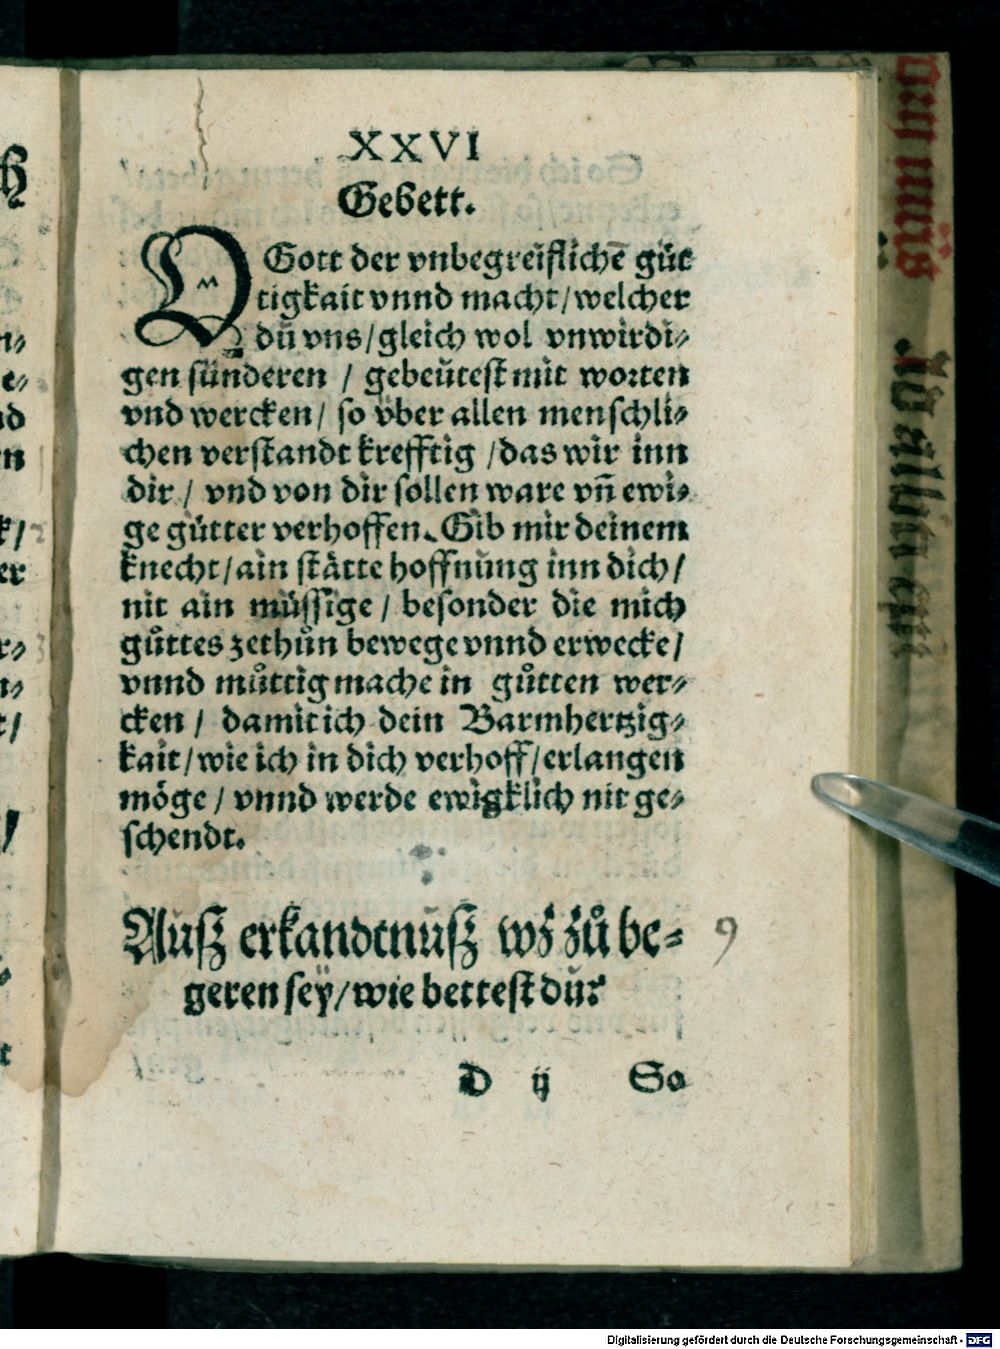 XXVI
Gebett.
O Gott der vnbegreiflichē güt
tigkait vnnd macht / welcher
dů vns / gleich wol vnwirdi⸗
gen sünderen / gebeütest mit worten
vnd wercken / so vber allen menschli⸗
chen verstandt krefftig / das wir inn
dir / vnd von dir sollen ware vñ ewi⸗
ge gütter verhoffen. Gib mir deinem
knecht / ain stätte hoffnung inn dich /
nit ain müssige / besonder die mich
gůttes zethůn bewege vnnd erwecke /
vnnd můttig mache in gůtten wer⸗
cken / damit ich dein Barmhertzig⸗
kait / wie ich in dich verhoff / erlangen
möge / vnnd werde ewigklich nit ge⸗
schendt.
Ausz erkandtnusz wz zů be⸗
geren seÿ / wie bettest du?
9
D ij So
Digitalisierung gefördert durch die Deutsche Forschungsgemeinschaft - DFG